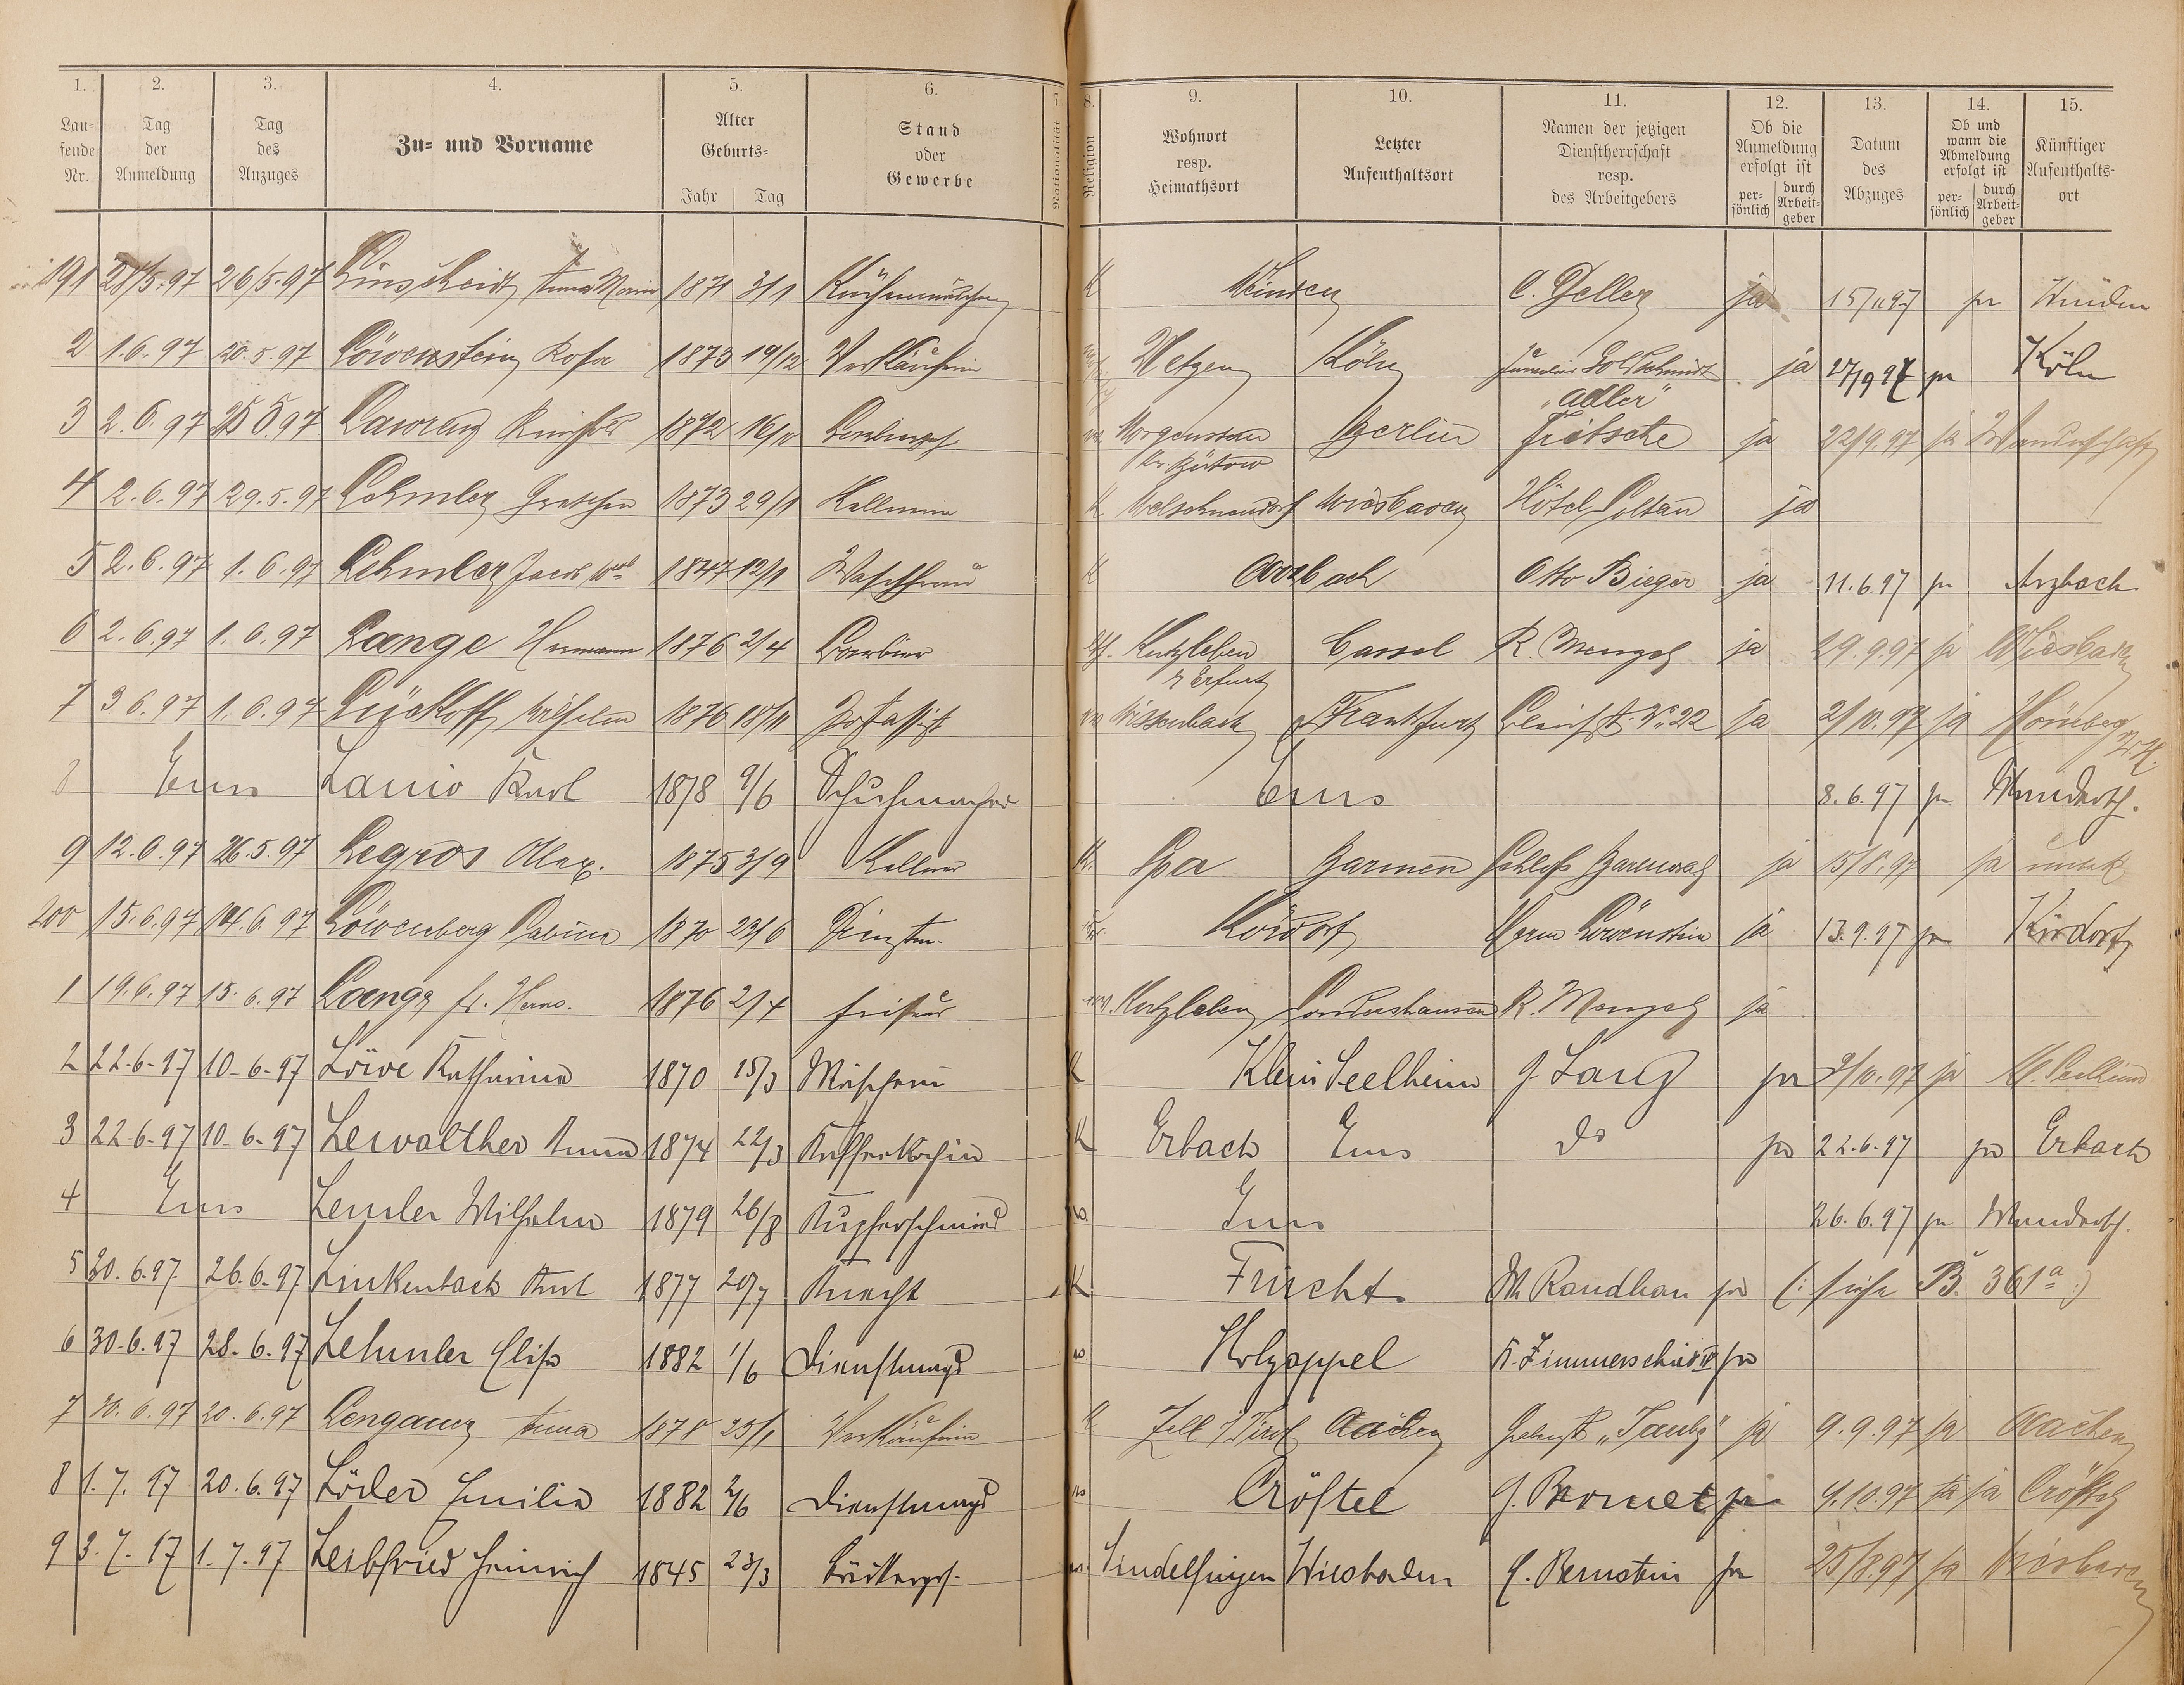 1. 2. 3. 4. 5. 6. 7. 8. 9. 10. 11. 12. 13. 14. 15.
Laufende Nr. Tag der Anmeldung Tag des Anzuges Zu- und Vorname Alter Geburts- Jahr Tag Stand oder Gewerbe Nationalität Religion Wohnort resp. Heimathsort Letzter Aufenthaltsort Namen der jetzigen Dienstherrschaft resp. des Arbeitgebers Ob die Anmeldung erfolgt ist persönlich durch Arbeitgeber Datum des Abzuges Ob und wann die Abmeldung erfolgt ist persönlich durch Arbeitgeber Künftiger Aufenthaltsort
191 28/5.97 26/5.97 Linscheidt Anna Maria 1871 3/1 Küchenmädchen K Winden C. Deller ja 15/11 97 ja Winden
2 1.6.97 20.5.97 Löwenstein Rosa 1873 19/12 Verkäuferin Köln Goldschmidt ja ja Köln
"Adler"
3 2.6.97 Lawrenz Reinhold 1872 Morgenstern Berlin Fritsche ja 22/9.97 ja Wanderschaft
Kr. Bütow
4 2.6.97 29.5.97 Lehmler Gretchen 1873 29/1 Kellnerin K Welschneudorf Wiesbaden Hôtel Goltau ja
5 2.6.97 1.6.97 Lehmler Jacob Wwe 1847 12/1 Waschfrau K Arzbach Otto Bieger ja 11.6.97 ja Arzbach
6 2.6.97 1.6.97 Lange Hermann 1876 2/4 Barbier Kutzleben Cassel R. Menzel ja 29.9.97 ja Wiesbaden
Erfurt
7 3.6.97 1.6.97 Lückoff Wilhelm 1876 18/11 Frankfurt No 22 ja 2/10.97 ja
8 Ems Lanio Karl 1878 9/6 Schuhmacher Ems 8.6.97 ja Wandersch.
9 12.6.97 26.5.97 Legros Alex. 1875 3/9 Kellner K. Spa Barmen Schloß ja 15/8.97 ja unbek
200 15.6.97 14.6.97 Löwenberg Sabina 1870 Dienstm. Kördorf Herm Löwenstein ja 13.9.97 ja Kördorf
1 19.6.97 15.6.97 Lange fr. Herm. 1876 2/4 Friseur ev. Kutzleben Sondershausen R. Menzel ja
2 22-6-97 10-6-97 Löwe Katharina 1870 15/3 Wäscherin K Klein Seelheim J. Lang ja 2/10.97 ja Kl. Seelheim
3 22-6-97 10-6-97 Lewalther Anna 1874 22/3 Kaffeeköchin K Erbach Ems do ja 22.6.97 ja Erbach
4 Ems Lemler Wilhelm 1879 26/8 Kupferschmied Ems 26.6.97 ja Wandersch.
5 30.6.97. 26.6-97 Linkenbach Karl 1877 20/7 Knecht K Frücht W. Randhan ja (: siehe B. 361a :)
6 30-6.97 28-6.97 Lehmler Elise 1882 1/6 Dienstmagd Holzappel K. Zimmerschied IV ja
7 30.6.97 20.6.97 Lengauer Anna 1878 25/1 Verkäuferin K Zell i/Tirol Aachen "Taube" ja 9.9.97 ja Aachen
8 1.7.97 20.6.97 Löder Emilie 1882 2/6 Dienstmagd Cröftel J. Bromet ja 9.10.97 ja Cröftel
9 3.7.97 1.7.97 Leibfried Heinrich 1845 23/3 Bäckerges. Sindelfingen Wiesbaden C. Bernstein ja 25/8.97 ja Wiesbaden